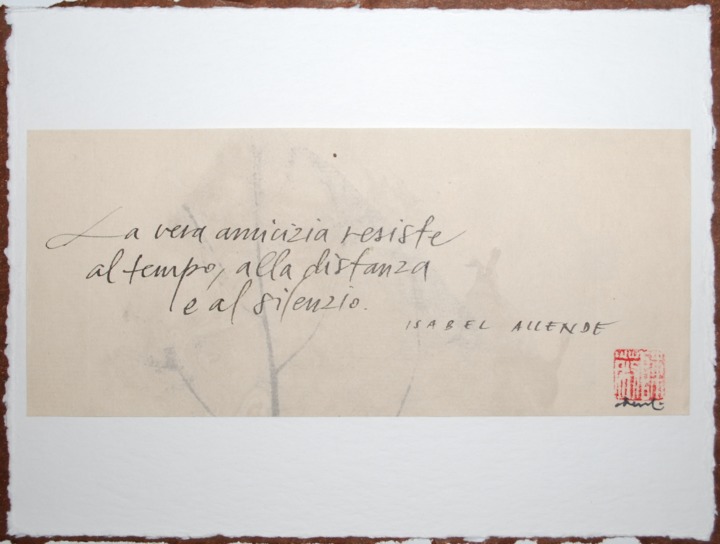 La vera amicizia resiste
al tempo, alla distanza
e al silenzio.
ISABEL ALLENDE